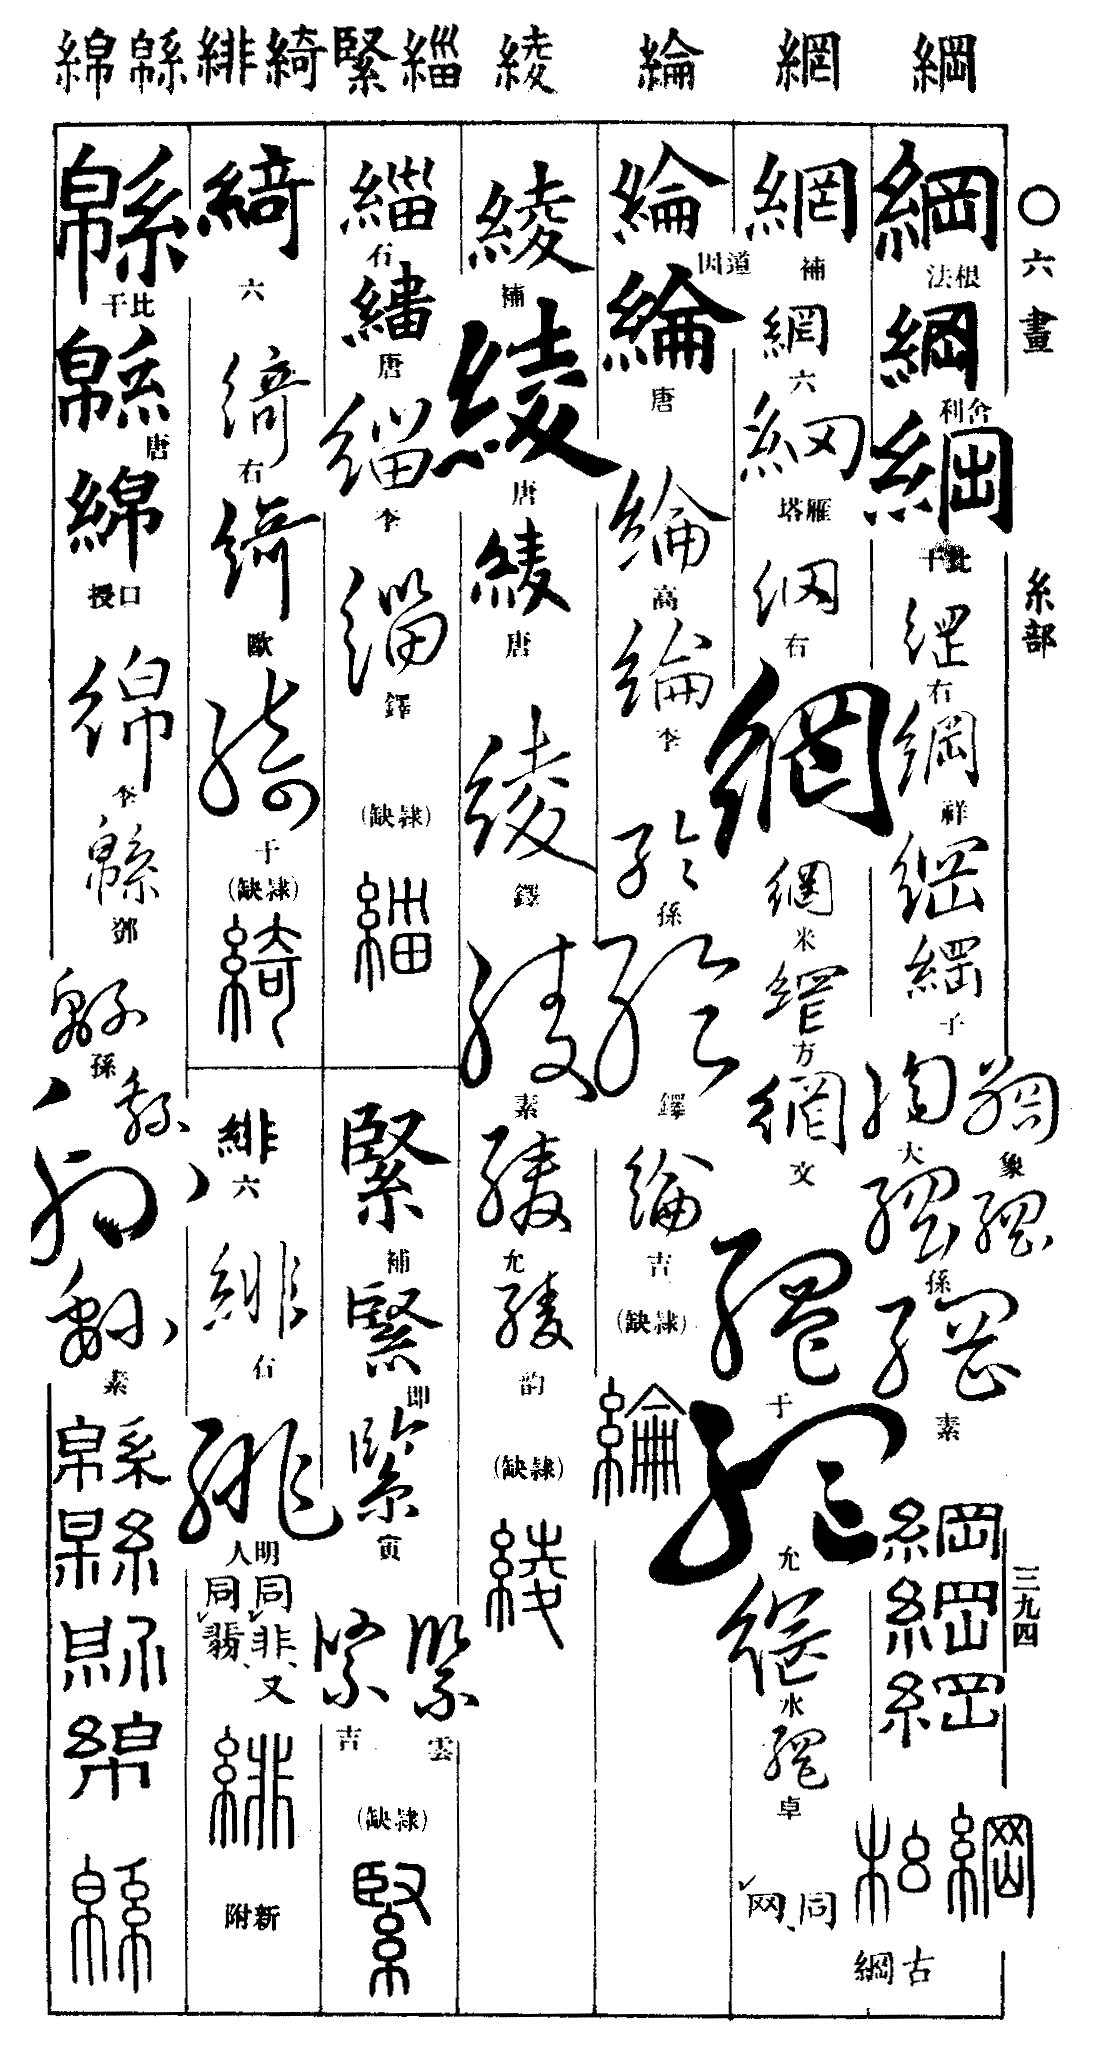 綱 網 綸 綾 緇 緊 綺 緋 緜 綿
○六畫
糸部
三九四
綱
根法
綱
舍利
綱
比干
綱
右
綱
祥
綱
綱
子
綱
象
綱
大
綱
綱
孫
綱
素
綱
綱
綱
綱
古綱
網
補
網
六
網
雁塔
網
右
網
網
米
網
方
網
文
網
于
網
允
網
水
網
卓
同、网
綸
道因
綸
唐
綸
高
綸
李
綸
孫
綸
鐸
綸
吉
(隷缺)
綸
綾
補
綾
唐
綾
唐
綾
鐸
綾
素
綾
允
綾
韵
(隷缺)
綾
緇
右
緇
唐
緇
李
緇
鐸
(隷缺)
緇
緊
補
緊
即
緊
寅
緊
雲
緊
吉
(隷缺)
緊
綺
六
綺
右
綺
歐
綺
于
(隷缺)
綺
緋
六
緋
右
緋
明人
同非、又同翡、
緋
新附
緜
比干
緜
唐
綿
口授
綿
李
緜
鄧
緜
孫
緜
緜
緜
素
緜
緜
緜
綿
緜